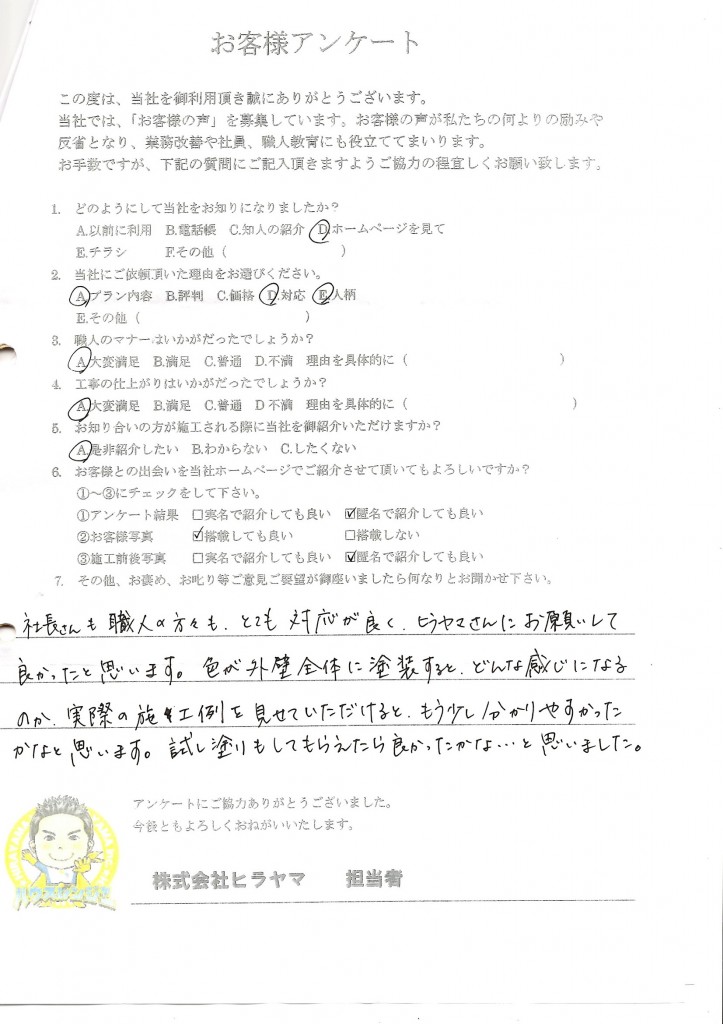 お客様アンケート
この度は、当社を御利用頂き誠にありがとうございます。
当社では、「お客様の声」を募集しています。お客様の声が私たちの何よりの励みや
反省となり、業務改善や社員、職人教育にも役立ててまいります。
お手数ですが、下記の質問にご記入頂きますようご協力の程宜しくお願い致します。
1. どのようにして当社をお知りになりましたか？
A.以前に利用 B.電話帳 C.知人の紹介 D.ホームページを見て
E.チラシ F.その他（ ）
2. 当社にご依頼頂いた理由をお選びください。
A.プラン内容 B.評判 C.価格 D.対応 E.人柄
E.その他（ ）
3. 職人のマナーはいかがだったでしょうか？
A.大変満足 B.満足 C.普通 D.不満 理由を具体的に（ ）
4. 工事の仕上がりはいかがだったでしょうか？
A.大変満足 B.満足 C.普通 D不満 理由を具体的に（ ）
5. お知り合いの方が施工される際に当社を御紹介いただけますか？
A.是非紹介したい B.わからない C.したくない
6. お客様との出会いを当社ホームページでご紹介させて頂いてもよろしいですか？
①～③にチェックをして下さい。
①アンケート結果 □実名で紹介しても良い ☑匿名で紹介しても良い
②お客様写真 ☑搭載しても良い □搭載しない
③施工前後写真 □実名で紹介しても良い ☑匿名で紹介しても良い
7. その他、お褒め、お叱り等ご意見ご要望が御座いましたら何なりとお聞かせ下さい。
社長さんも職人の方々も、とても対応が良く、ヒラヤマさんにお願いして
良かったと思います。色が外壁全体に塗装すると、どんな感じになる
のか、実際の施工例を見せていただけると、もう少し分かりやすかった
かなと思います。試し塗りもしてもらえたら良かったかな…と思いました。
アンケートにご協力ありがとうございました。
今後ともよろしくおねがいいたします。
株式会社ヒラヤマ 担当者